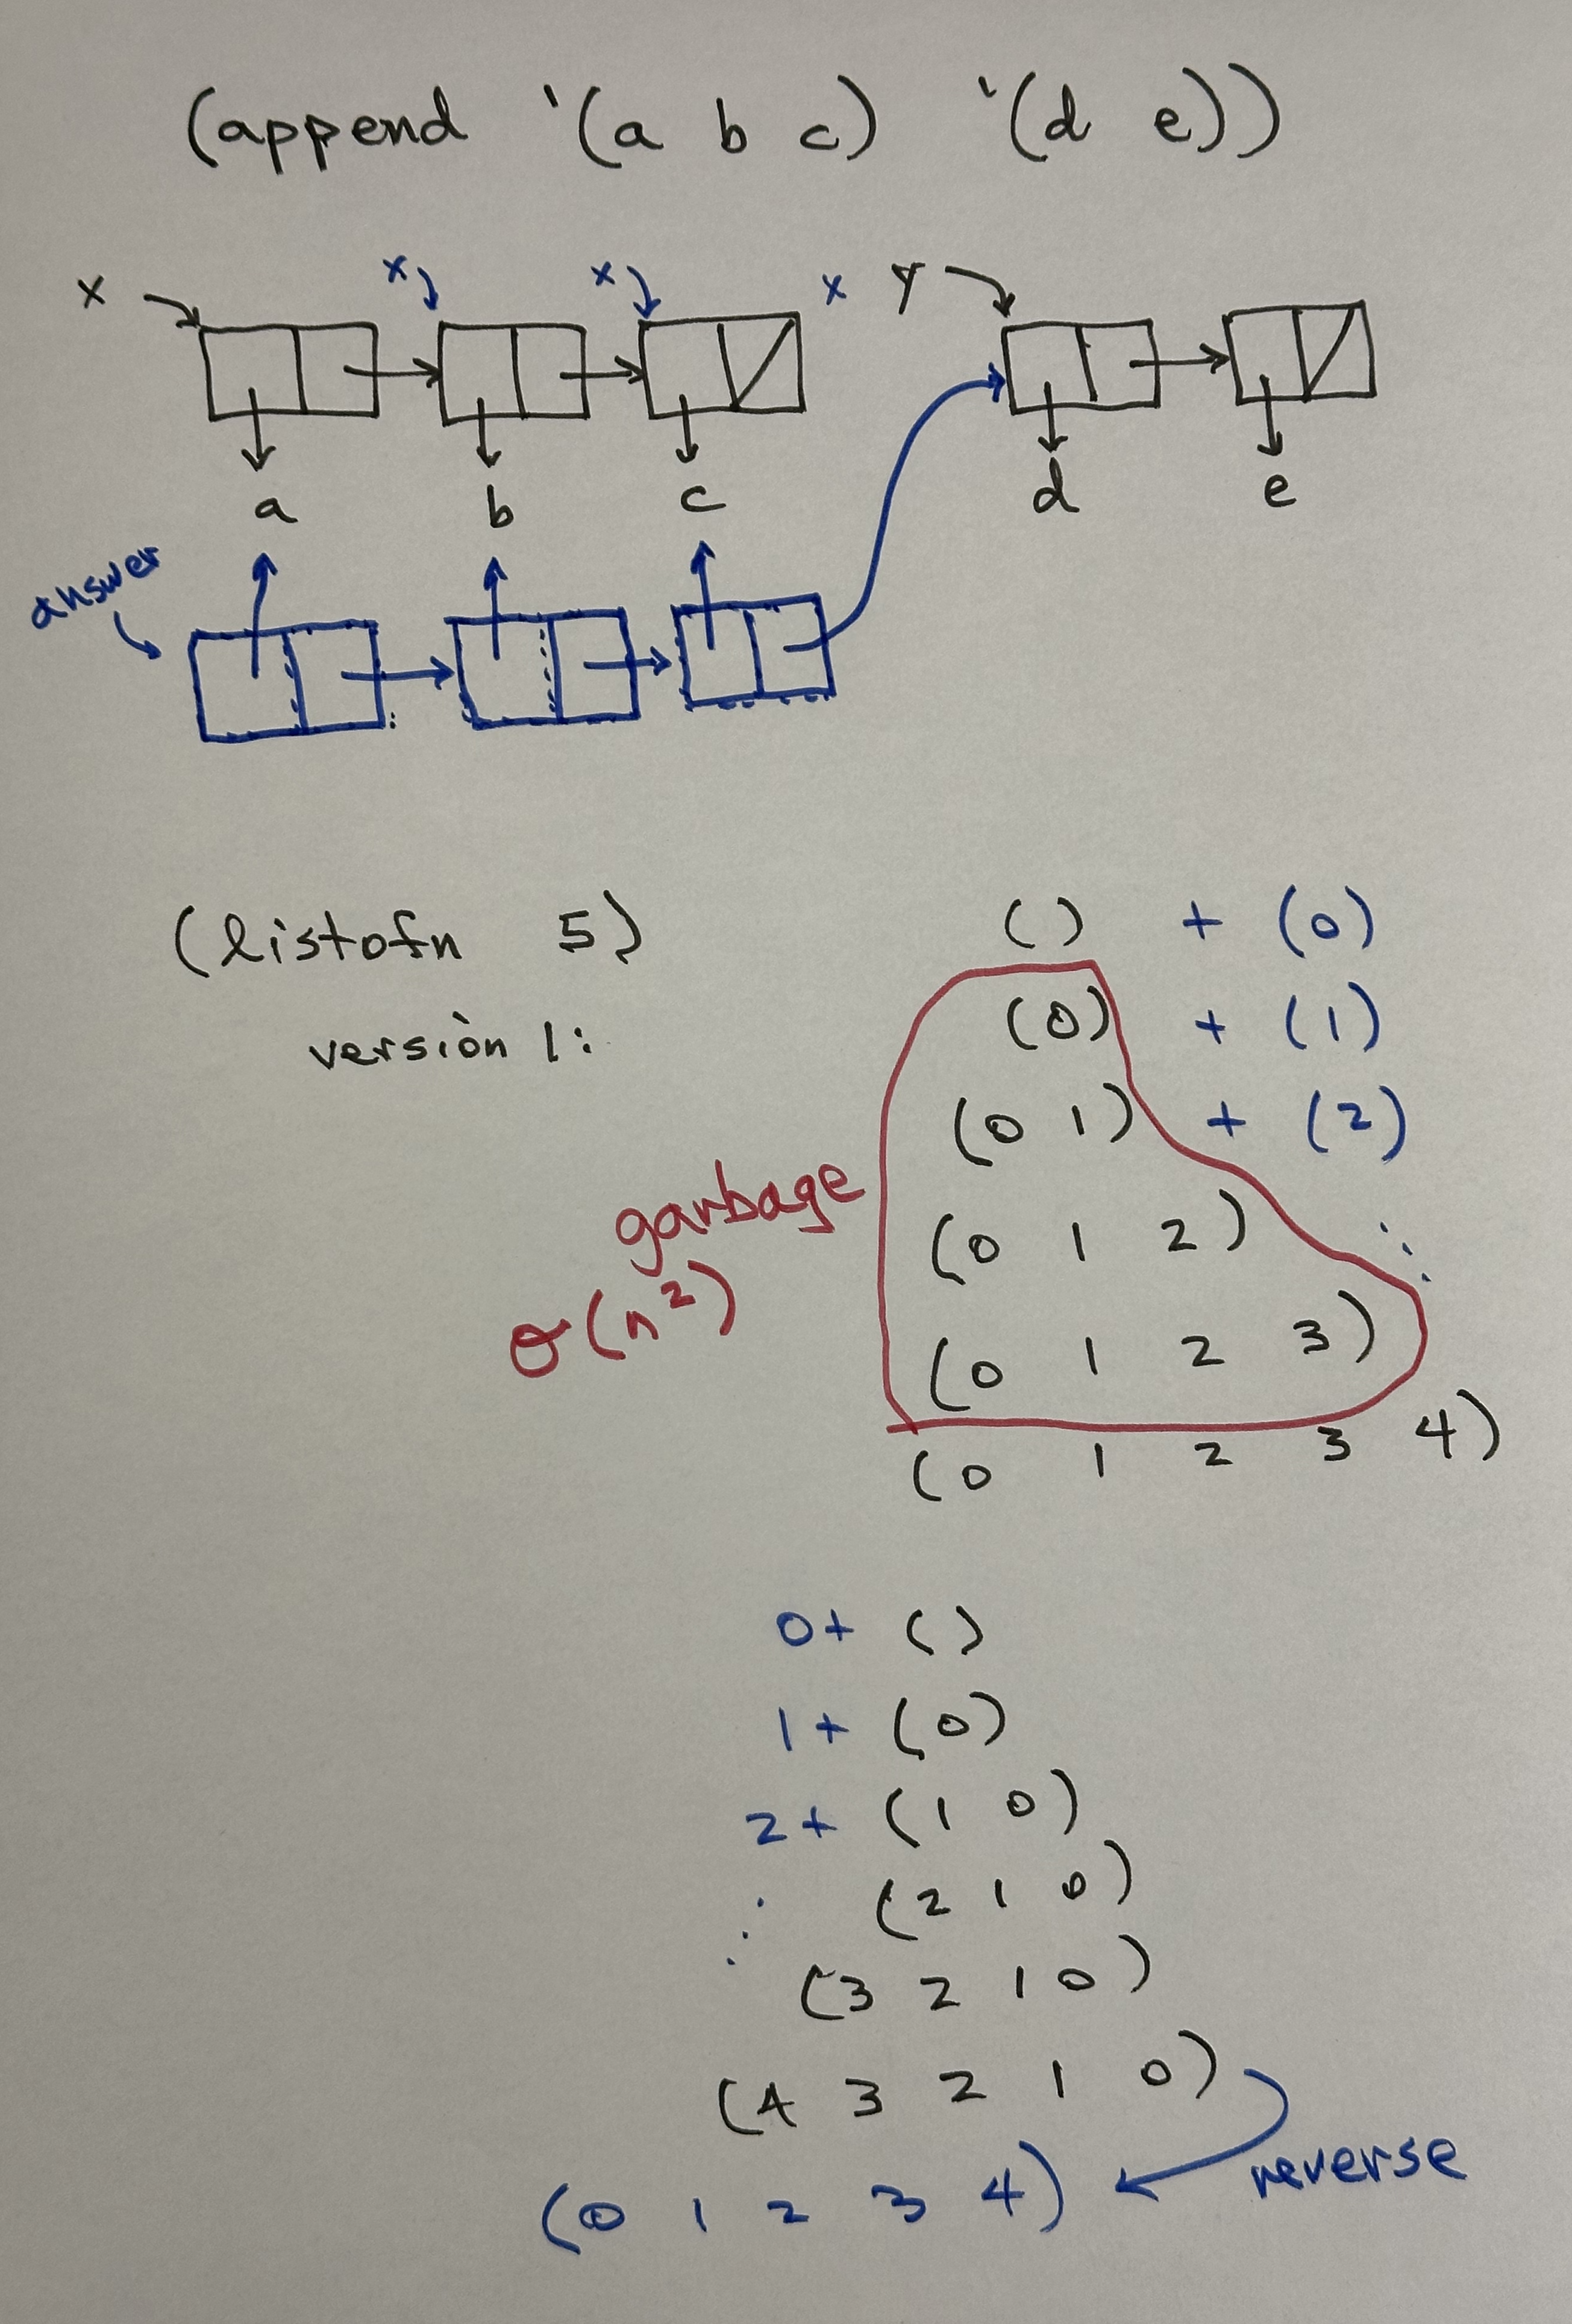 (append '(a b c) '(d e))
x x x x y
a b c d e
answer
(listofn 5)
versiòn 1:
() + (0)
(0) + (1)
(0 1) + (2)
(0 1 2)
(0 1 2 3)
(0 1 2 3 4)
garbage
O(n²)
0+ ()
1+ (0)
2+ (1 0)
(2 1 0)
(3 2 1 0)
(4 3 2 1 0)
reverse
(0 1 2 3 4)